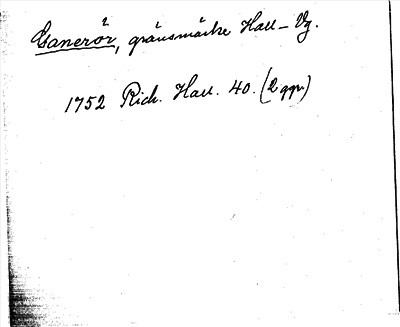 Ganerör, gränsmärke Hall–Vg.
1752 Rich. Hall. 40. (2 ggr)